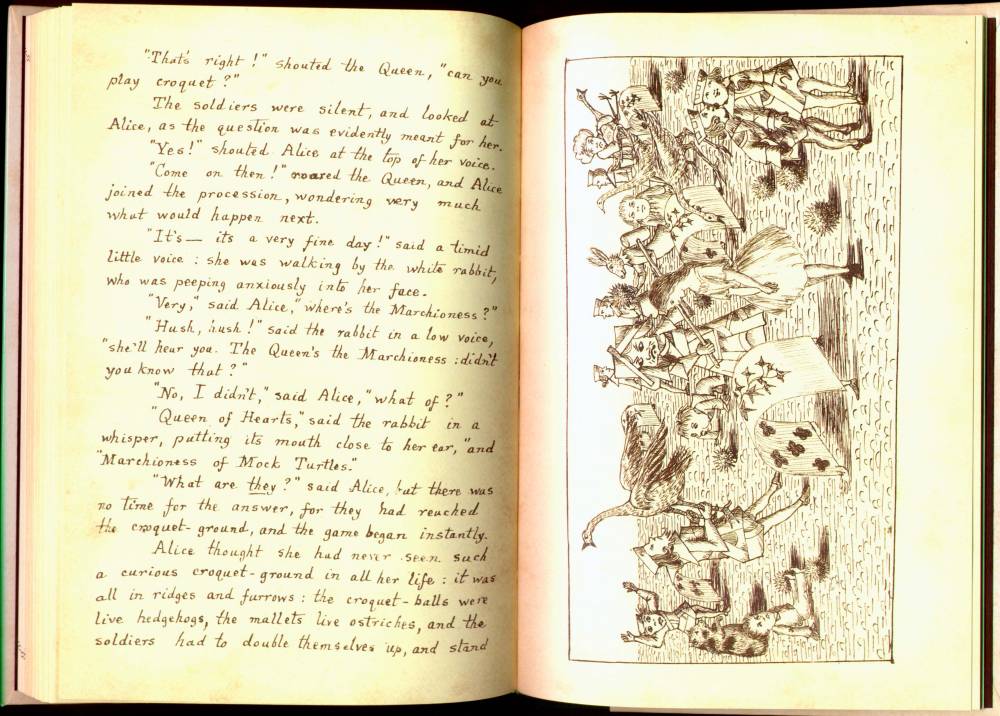 "That's right!" shouted the Queen, "can you
play croquet?"
The soldiers were silent, and looked at
Alice, as the question was evidently meant for her.
"Yes!" shouted Alice at the top of her voice.
"Come on then!" roared the Queen, and Alice
joined the procession, wondering very much
what would happen next.
"It's— its a very fine day!" said a timid
little voice: she was walking by the white rabbit,
who was peeping anxiously into her face.
"Very," said Alice, "where's the Marchioness?"
"Hush, hush!" said the rabbit in a low voice,
"she'll hear you. The Queen's the Marchioness: didn't
you know that?"
"No, I didn't," said Alice, "what of?"
"Queen of Hearts," said the rabbit in a
whisper, putting its mouth close to her ear, "and
"Marchioness of Mock Turtles."
"What are they?" said Alice, but there was
no time for the answer, for they had reached
the croquet-ground, and the game began instantly.
Alice thought she had never seen such
a curious croquet-ground in all her life: it was
all in ridges and furrows: the croquet-balls were
live hedgehogs, the mallets live ostriches, and the
soldiers had to double themselves up, and stand